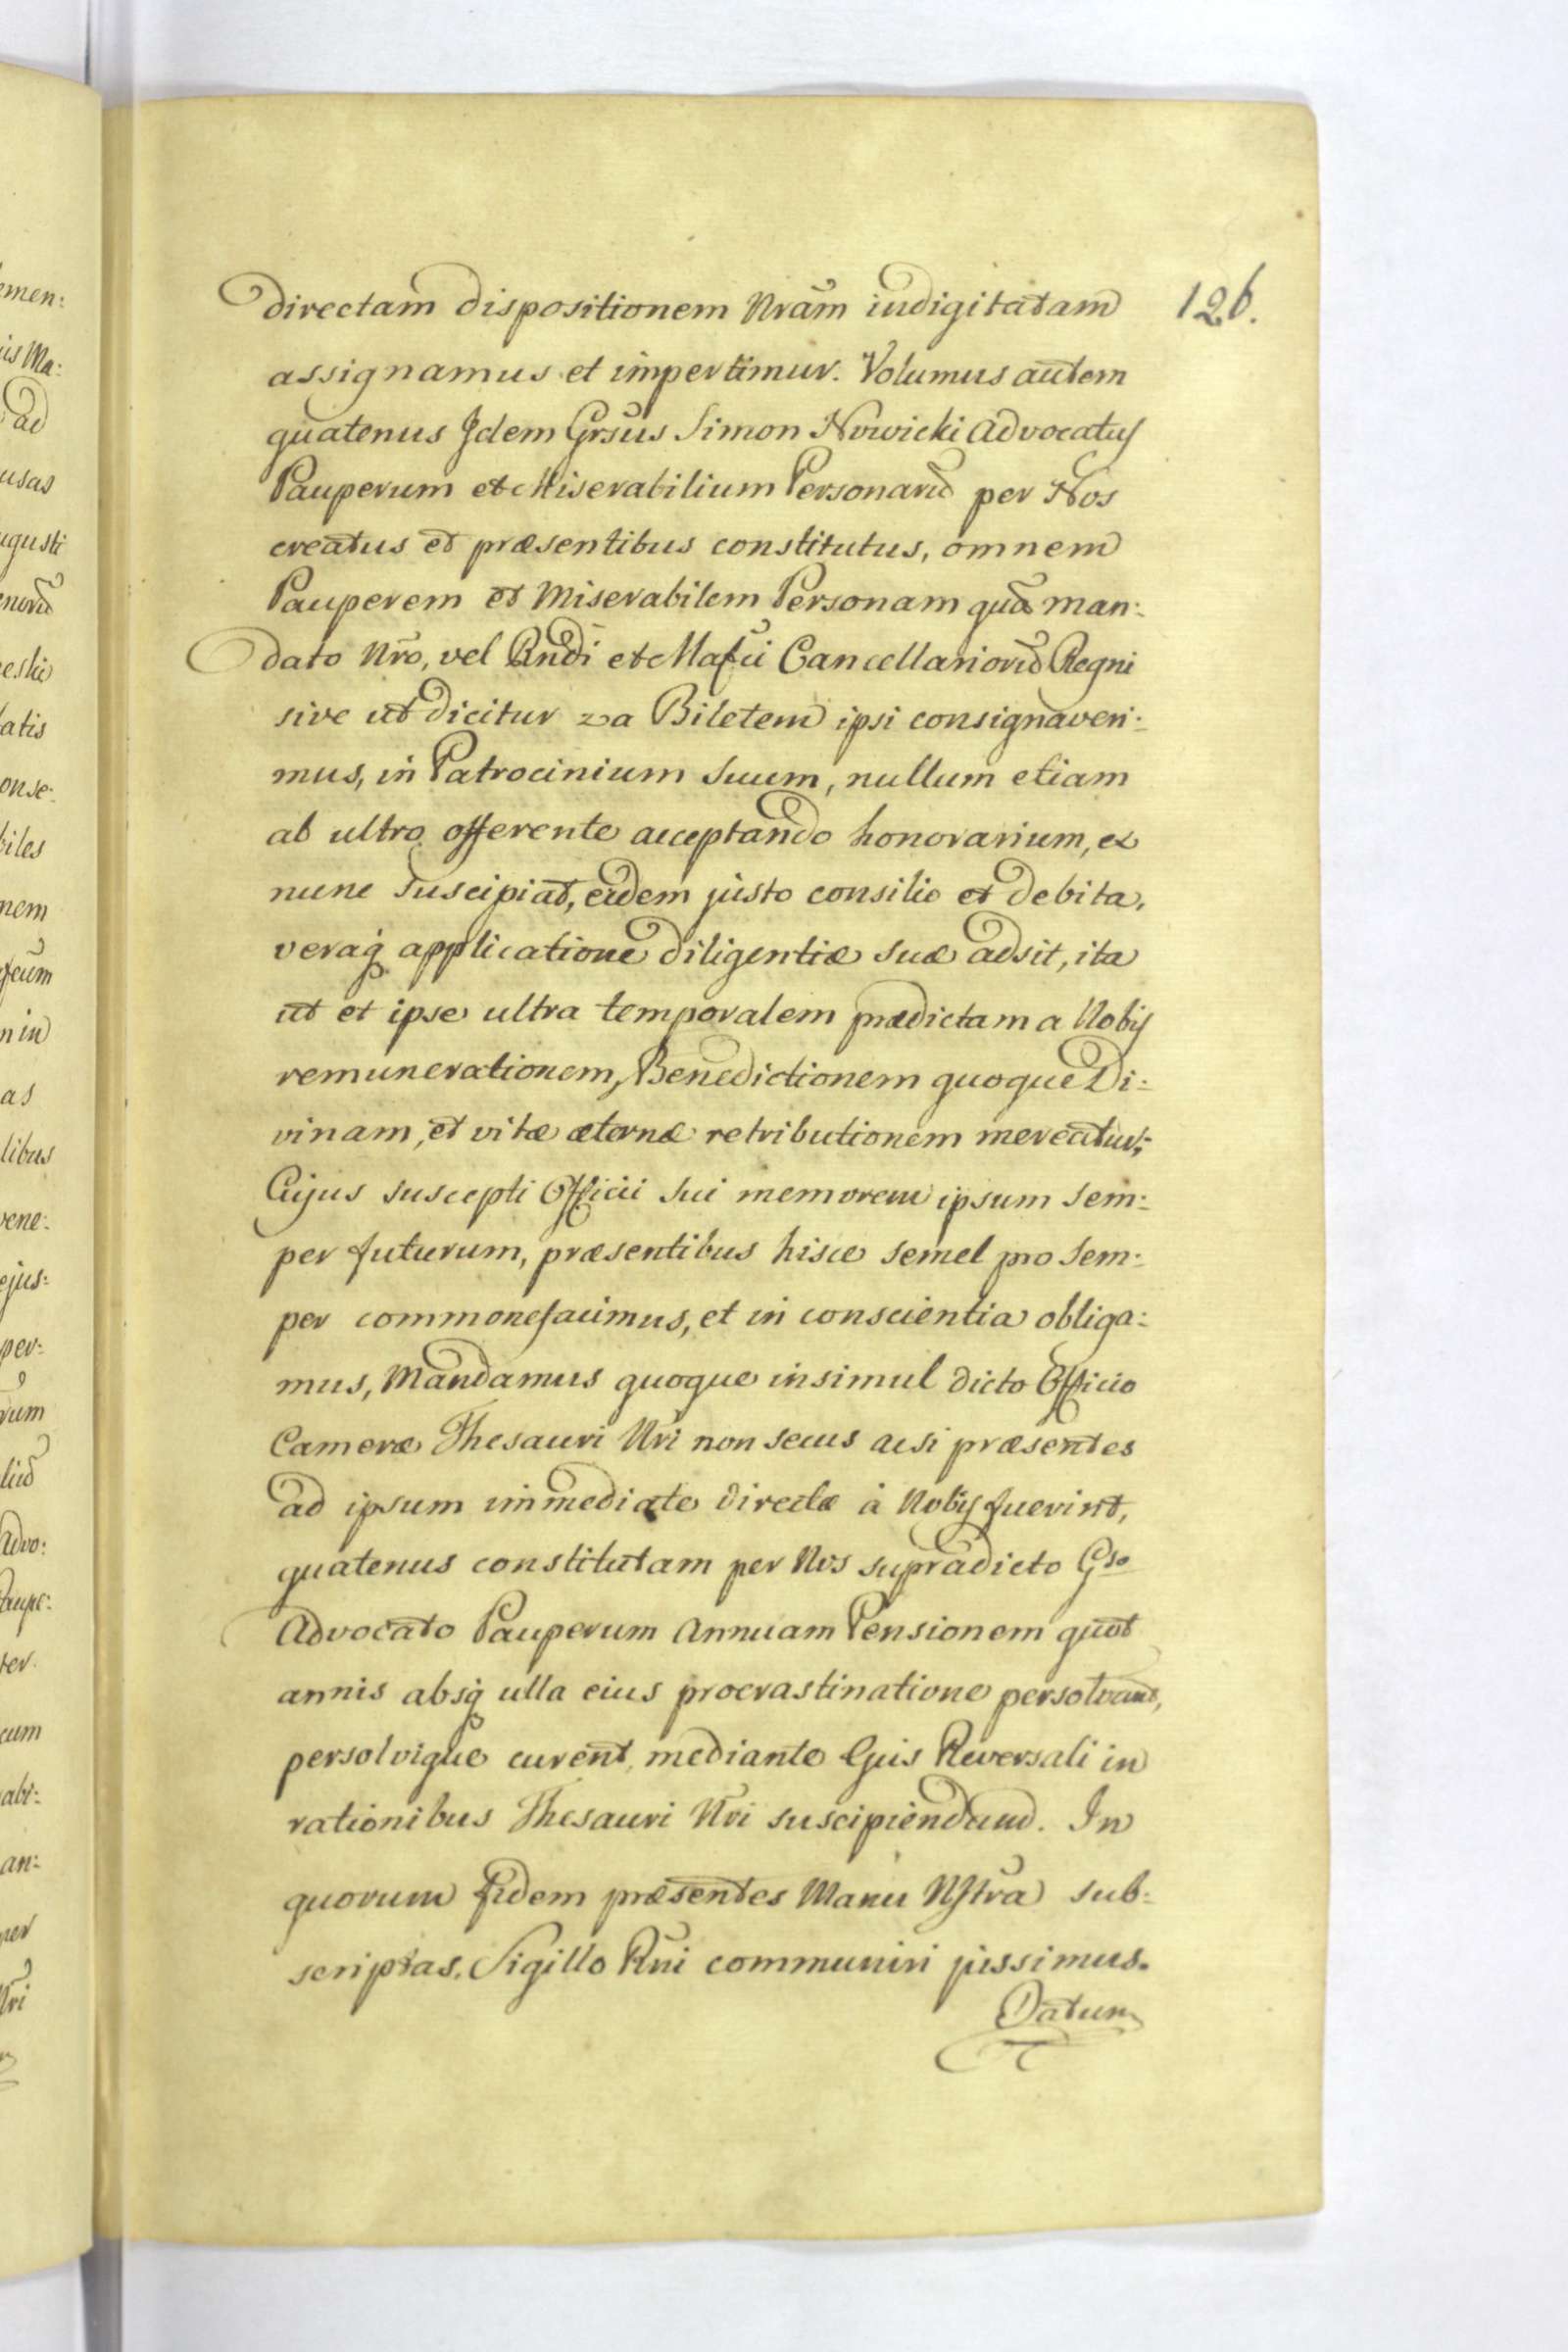 126.
directam dispositionem Nrãm indigitatam
assignamus et impertimur. Volumus autem
quatenus Jdem Grsũs Simon Nowicki Advocatus
Pauperum et Miserabilium Personarũ per Nos
creatus et præsentibus constitutus, omnem
Pauperem et Miserabilem Personam quã man:
dato Nrõ, vel Rndĩ et Mafci Cancellariorũ Regni
sive ut dicitur za Biletem ipsi consignaveri:
mus, in Patrocinium Suum, nullum etiam
ab ultro offerente acceptando honorarium, ex
nunc Suscipiat, eidem justo consilio et debita,
veraq̃ applicatione diligentiæ suæ adsit, ita
ut et ipse ultra temporalem prædictam a Nobis
remunerationem, Benedictionem quoque Di:
vinam, et vitæ æternæ retributionem mereatur;
Cujus suscepti Officii Sui memorem ipsum Sem:
per futurum, præsentibus hisce semel pro Sem:
per commonefacimus, et in conscientia obliga:
mus, Mandamus quoque insimul dicto Officio
Cameræ Thesauri Nri non secus acsi præsentes
ad ipsum immediate directæ à Nobis fuerint,
quatenus constitutam per Nos supradicto Gso
Advocato Pauperum Annuam Pensionem quot
annis absq̃ ulla eius procrastinatione persolvant,
persolvique curent, mediante Ejus Reversali in
rationibus Thesauri Nri suscipiendam. In
quorum fidem præsentes Manu Nstrã sub:
scriptas, Sigillo Rni communiri jussimus.
Datum
emen:
is Ma:
ad
usas
ugusti
norũ
eski
atis
onse:
biles
nem
in
as
libus
vene:
ejus:
per:
rum
Advo:
Paupe:
ter
cum
abi:
an:
per
Nri